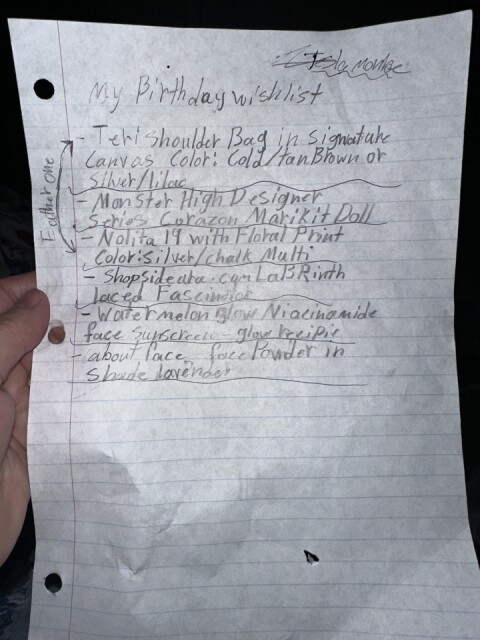 Isla monlae
My Birthday wishlist
- Teri Shoulder Bag in Signature
Canvas Color: Gold/tan Brown or
Silver/lilac
- Monster High Designer
Series Corazon Marikit Doll
- Nolita 19 with Floral Print
Color: Silver/chalk Multi
- Shopsideara.com LaB3Rinth
laced Fascinator
- Watermelon glow Niacinamide
face sunscreen - glow recipie
- about face face Powder in
Shade lavender
Eather one